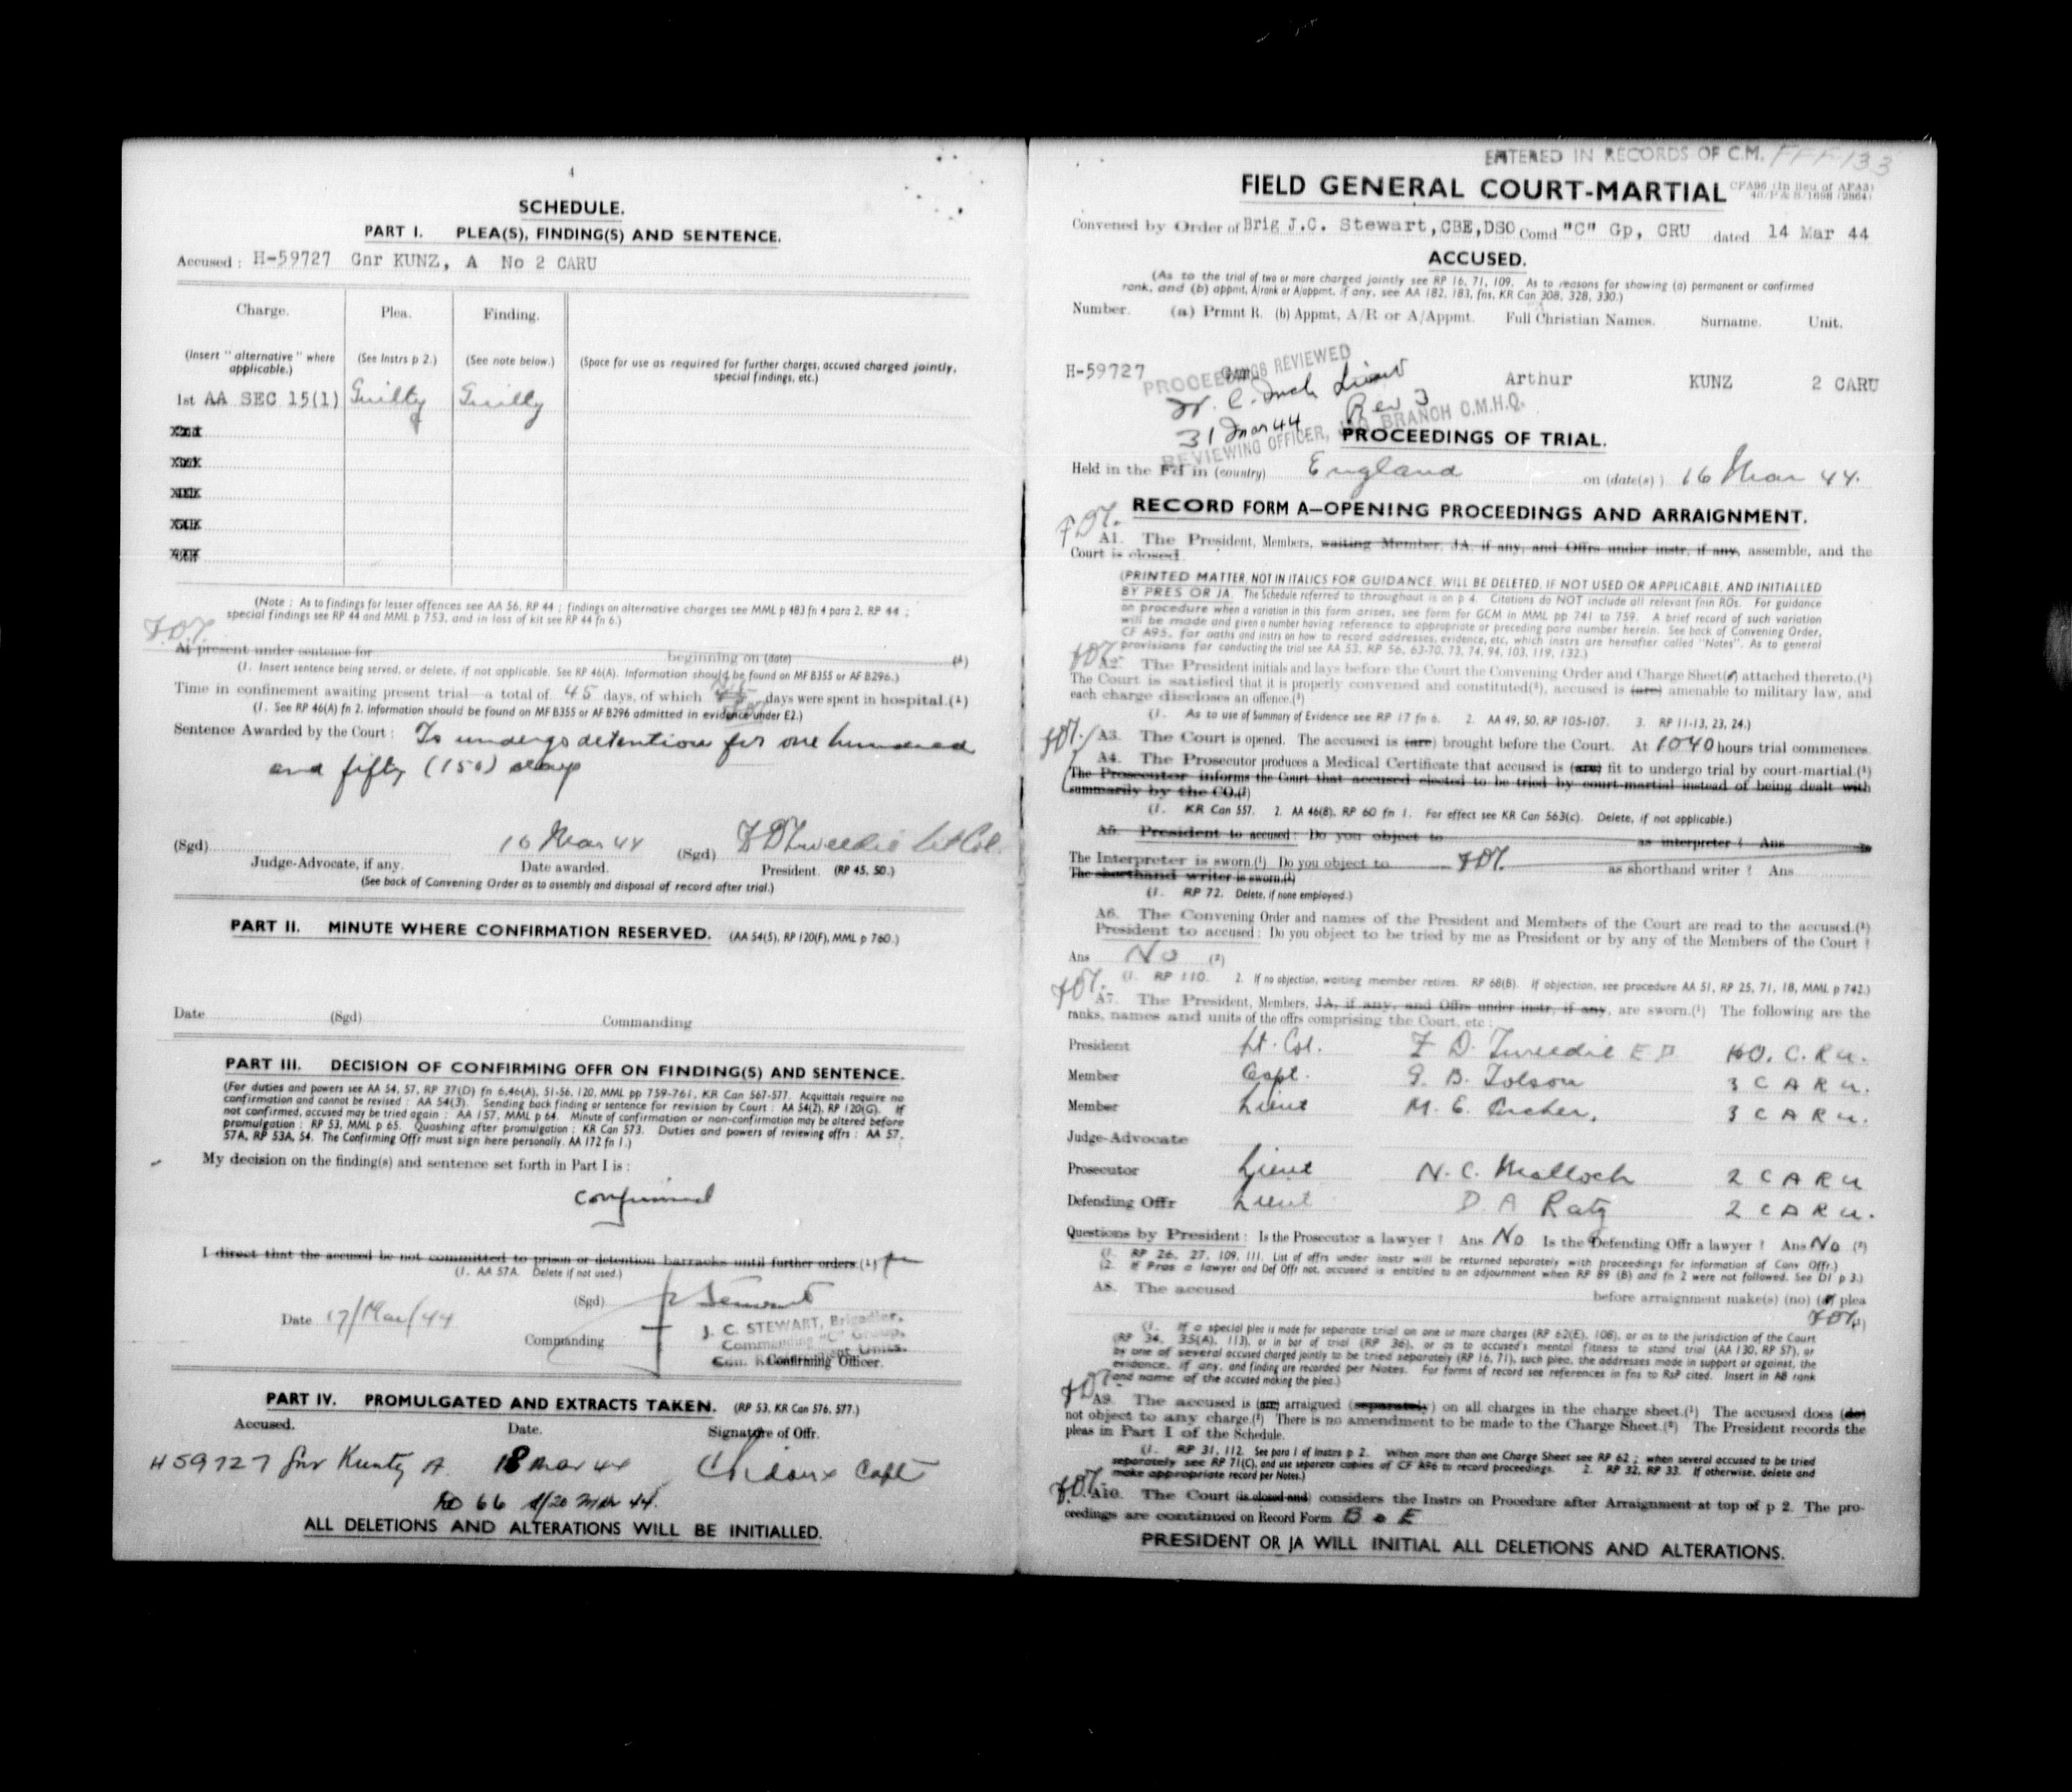 4
SCHEDULE.
PART I. PLEA(S), FINDING(S) AND SENTENCE.
Accused : H-59727 Gnr KUNZ, A No 2 CARU
Charge. Plea. Finding.
(Insert " alternative " where applicable.) (See Instrs p 2.) (See note below.) (Space for use as required for further charges, accused charged jointly, special findings, etc.)
1st AA SEC 15(1) Guilty Guilty
(Note : As to findings for lesser offences see AA 56, RP 44 ; findings on alternative charges see MML p 483 fn 4 para 2, RP 44 ;
special findings see RP 44 and MML p 753, and in loss of kit see RP 44 fn 6.)
At present under sentence for beginning on (date) (¹)
(1. Insert sentence being served, or delete, if not applicable. See RP 46(A). Information should be found on MF B355 or AF B296.)
Time in confinement awaiting present trial—a total of 45 days, of which days were spent in hospital.(¹)
(1. See RP 46(A) fn 2. Information should be found on MF B355 or AF B296 admitted in evidence under E2.)
Sentence Awarded by the Court : To undergo detention for one hundred
and fifty (150) days
(Sgd) 16 Mar 44 (Sgd) F D Tweedie Lt Col.
Judge-Advocate, if any. Date awarded. President. (RP 45, 50.)
(See back of Convening Order as to assembly and disposal of record after trial.)
PART II. MINUTE WHERE CONFIRMATION RESERVED. (AA 54(5), RP 120(F), MML p 760.)
Date (Sgd) Commanding
PART III. DECISION OF CONFIRMING OFFR ON FINDING(S) AND SENTENCE.
(For duties and powers see AA 54, 57, RP 37(D) fn 6,46(A), 51-56, 120, MML pp 759-761, KR Can 567-577. Acquittals require no
confirmation and cannot be revised : AA 54(3). Sending back finding or sentence for revision by Court : AA 54(2), RP 120(G). If
not confirmed, accused may be tried again : AA 157, MML p 64. Minute of confirmation or non-confirmation may be altered before
promulgation : RP 53, MML p 65. Quashing after promulgation : KR Can 573. Duties and powers of reviewing offrs : AA 57,
57A, RP 53A, 54. The Confirming Offr must sign here personally. AA 172 fn 1.)
My decision on the finding(s) and sentence set forth in Part I is :
Confirmed
I direct that the accused be not committed to prison or detention barracks until further orders.(¹)
(1. AA 57A. Delete if not used.)
(Sgd) Stewart
Date 17/Mar/44
Commanding
J. C. STEWART, Brigadier,
Commanding "C" Group,
Confirming Officer.
PART IV. PROMULGATED AND EXTRACTS TAKEN. (RP 53, KR Can 576, 577.)
Accused. Date. Signature of Offr.
H 59727 Gnr Kuntz A. 18 Mar 44 Capt
66 d/20 Mar 44.
ALL DELETIONS AND ALTERATIONS WILL BE INITIALLED.
ENTERED IN RECORDS OF C.M. FFF 133
FIELD GENERAL COURT-MARTIAL
CFA96 (In lieu of AFA3)
Convened by Order of Brig J.C. Stewart,CBE,DSO Comd "C" Gp, CRU dated 14 Mar 44
ACCUSED.
(As to the trial of two or more charged jointly see RP 16, 71, 109. As to reasons for showing (a) permanent or confirmed
rank, and (b) appmt, A/rank or A/appmt, if any, see AA 182, 183, fns, KR Can 308, 328, 330.)
Number. (a) Prmnt R. (b) Appmt, A/R or A/Appmt. Full Christian Names. Surname. Unit.
H-59727 Gnr Arthur KUNZ 2 CARU
PROCEEDINGS REVIEWED
Lieut
31 Mar 44 Rev 3
REVIEWING OFFICER, JAG BRANCH C.M.H.Q.
PROCEEDINGS OF TRIAL.
Held in the Fd in (country) England on (date(s)) 16 Mar 44.
RECORD FORM A—OPENING PROCEEDINGS AND ARRAIGNMENT.
A1. The President, Members, waiting Member, JA, if any, and Offrs under instr, if any, assemble, and the
Court is closed.
(PRINTED MATTER, NOT IN ITALICS FOR GUIDANCE, WILL BE DELETED, IF NOT USED OR APPLICABLE, AND INITIALLED
BY PRES OR JA. The Schedule referred to throughout is on p 4. Citations do NOT include all relevant fnin ROs. For guidance
on procedure when a variation in this form arises, see form for GCM in MML pp 741 to 759. A brief record of such variation
will be made and given a number having reference to appropriate or preceding para number herein. See back of Convening Order,
CF A95, for oaths and instrs on how to record addresses, evidence, etc, which instrs are hereafter called "Notes". As to general
provisions for conducting the trial see AA 53, RP 56, 63-70, 73, 74, 94, 103, 119, 132.)
A2. The President initials and lays before the Court the Convening Order and Charge Sheet(s) attached thereto.(¹)
The Court is satisfied that it is properly convened and constituted(²), accused is (are) amenable to military law, and
each charge discloses an offence.(³)
(1. As to use of Summary of Evidence see RP 17 fn 6. 2. AA 49, 50, RP 105-107. 3. RP 11-13, 23, 24.)
A3. The Court is opened. The accused is (are) brought before the Court. At 1040 hours trial commences.
A4. The Prosecutor produces a Medical Certificate that accused is (are) fit to undergo trial by court-martial.(¹)
The Prosecutor informs the Court that accused elected to be tried by court-martial instead of being dealt with
summarily by the CO.(²)
(1. KR Can 557. 2. AA 46(8), RP 60 fn 1. For effect see KR Can 563(c). Delete, if not applicable.)
A5. President to accused : Do you object to as interpreter ? Ans
The Interpreter is sworn.(¹) Do you object to as shorthand writer ? Ans
The shorthand writer is sworn.(¹)
(1. RP 72. Delete, if none employed.)
A6. The Convening Order and names of the President and Members of the Court are read to the accused.(¹)
President to accused : Do you object to be tried by me as President or by any of the Members of the Court ?
Ans No (²)
(1. RP 110. 2. If no objection, waiting member retires. RP 68(B). If objection, see procedure AA 51, RP 25, 71, 18, MML p 742.)
A7. The President, Members, JA, if any, and Offrs under instr, if any, are sworn.(¹) The following are the
ranks, names and units of the offrs comprising the Court, etc :
President Lt. Col. F D. Tweedie E D O. C. R U.
Member Capt. G. B. Tolson 3 C A R U.
Member Lieut M. E. Archer. 3 C A R U.
Judge-Advocate
Prosecutor Lieut N. C. Malloch 2 C A R U
Defending Offr Lieut D A Ratz 2 C A R U.
Questions by President : Is the Prosecutor a lawyer ? Ans No Is the Defending Offr a lawyer ? Ans No (²)
(1. RP 26, 27, 109, 111. List of offrs under instr will be returned separately with proceedings for information of Conv Offr.)
(2. If Pros a lawyer and Def Offr not, accused is entitled to an adjournment when RP 89 (B) and fn 2 were not followed. See D1 p 3.)
A8. The accused before arraignment make(s) (no) (a) plea
(1. If a special plea is made for separate trial on one or more charges (RP 62(E), 108), or as to the jurisdiction of the Court
(RP 34, 35(A), 113), or in bar of trial (RP 36), or as to accused's mental fitness to stand trial (AA 130, RP 57), or
by one of several accused charged jointly to be tried separately (RP 16, 71), such plea, the addresses made in support or against, the
evidence, if any, and finding are recorded per Notes. For forms of record see references in fns to RsP cited. Insert in A8 rank
and name of the accused making the plea.)
A9. The accused is (are) arraigned (separately) on all charges in the charge sheet.(¹) The accused does (do)
not object to any charge.(²) There is no amendment to be made to the Charge Sheet.(²) The President records the
pleas in Part I of the Schedule.
(1. RP 31, 112. See para 1 of Instrs p 2. When more than one Charge Sheet see RP 62 ; when several accused to be tried
separately see RP 71(C), and use separate copies of CF A96 to record proceedings. 2. RP 32, RP 33. If otherwise, delete and
make appropriate record per Notes.)
A10. The Court (is closed and) considers the Instrs on Procedure after Arraignment at top of p 2. The pro-
ceedings are continued on Record Form B & E
PRESIDENT OR JA WILL INITIAL ALL DELETIONS AND ALTERATIONS.